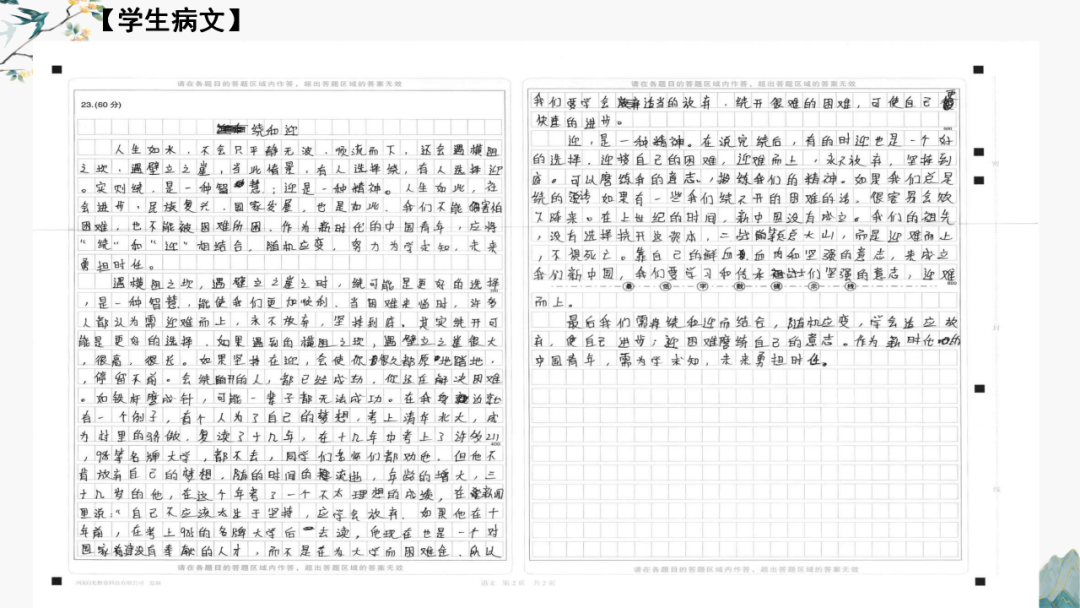 【学生病文】
请在各题目的答题区域内作答，超出答题区域的答案无效
23.(60分)
绕和迎
人生如水，不会只平静无波，顺流而下，还会遇横阻
之坎，遇壁立之崖，当此情景，有人选择绕，有人选择迎
。实则绕，是一种智慧；迎是一种精神。人生如此，社
会进步、民族复兴、国家发展，也是如此，我们不能惧害怕
困难，也不能被困难所困，作为新时代的中国青年，应将
“绕”和“迎”相结合，随机应变，努力为学求知，未来
勇担时任。
遇横阻之坎，遇壁立之崖之时，绕可能是更好的选择
，是一种智慧，能使我们更加快利。当困难来临时，许多
人都认为需迎难而上，永不放弃，坚持到底。其实绕开可
能是更好的选择。如果遇到的横阻之坎，遇壁立之崖很大
，很高，很长。如果坚持在迎，会使你原地踏地，
，停留不前。会绕开的人，都已经成功，你还在解决困难
。如铁杵磨成针，可能一辈子都无法成功。在我身边就
有一个例子，有个人为了自己的梦想，考上清华北大，成
为村里的骄傲，复读了十几年，在十几年中考上了许多211
，985等名牌大学，都不去，同学们老师们都劝他，但他不
肯放弃自己的梦想，随的时间的流逝，年龄的增大，三
十几岁的他，在这个年考了一个不太理想的成绩，在
里说：“自己不应该太生于坚持，应学会放弃，如果他在十
年前，在考上985的名牌大学后去读，他现在也是一个对
国家有奉献的人才，而不是在为大学而困难在，所以
请在各题目的答题区域内作答，超出答题区域的答案无效
语文 第2页 共2页
请在各题目的答题区域内作答，超出答题区域的答案无效
我们要学会适当的放弃，绕开很难的困难，可使自己
快速的进步。
迎，是一种精神。在说完绕后，有的时迎也是一个好
的选择，迎接自己的困难，迎难而上，永不放弃，坚持到
底。可以磨炼我的意志，锻炼我们的精神。如果我们总是
绕的 如果有一些我们绕不开的困难的话，很容易会败
下阵来。在上世纪的时间，新中国没有成立。我们的祖先
，没有选择 大山，而是迎难而上
，不惧死亡。靠自己的鲜血 和坚强的意志，来成立
我们新中国，我们要学习和传承 们坚强的意志，迎难
最低字数提示线
而上。
最后我们需将绕和迎而结合，随机应变，学会适应放
弃，使自己进步；迎困难磨练自己的意志。作为新时代的
中国青年，需为学求知，未来勇担时任。
请在各题目的答题区域内作答，超出答题区域的答案无效